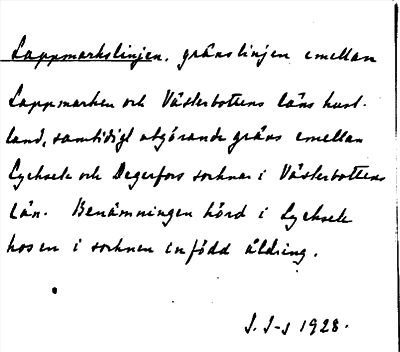 Lappmarkslinjen, gränslinjen emellan
Lappmarken och Västerbottens läns kust-
land, samtidigt utgörande gräns emellan
Lycksele och Degerfors socknar i Västerbottens
län. Benämningen hörd i Lycksele
hos en i socknen infödd åldring.
J. J-s 1928.